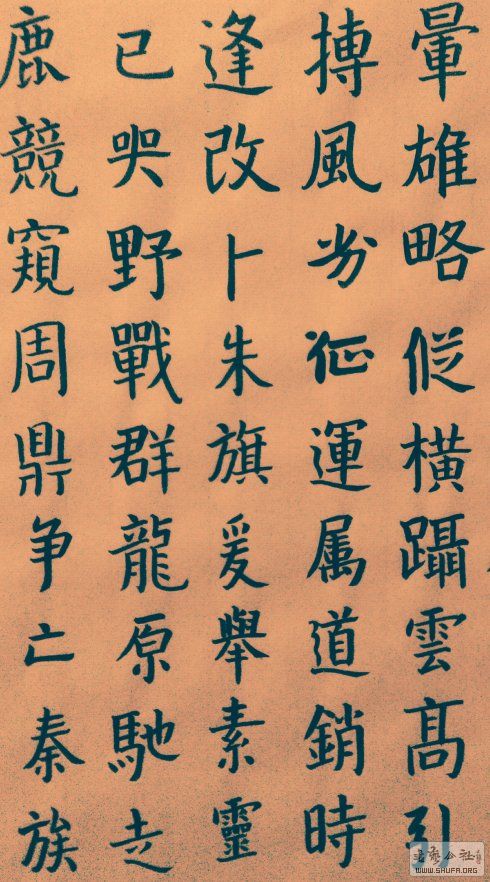 暈雄略從橫躡雲髙引
搏風征運属道銷時
逢改卜朱旗爰舉素靈
已哭野戰群龍原馳走
鹿競窺周鼎争亡秦族
WWW.SHUFA.ORG